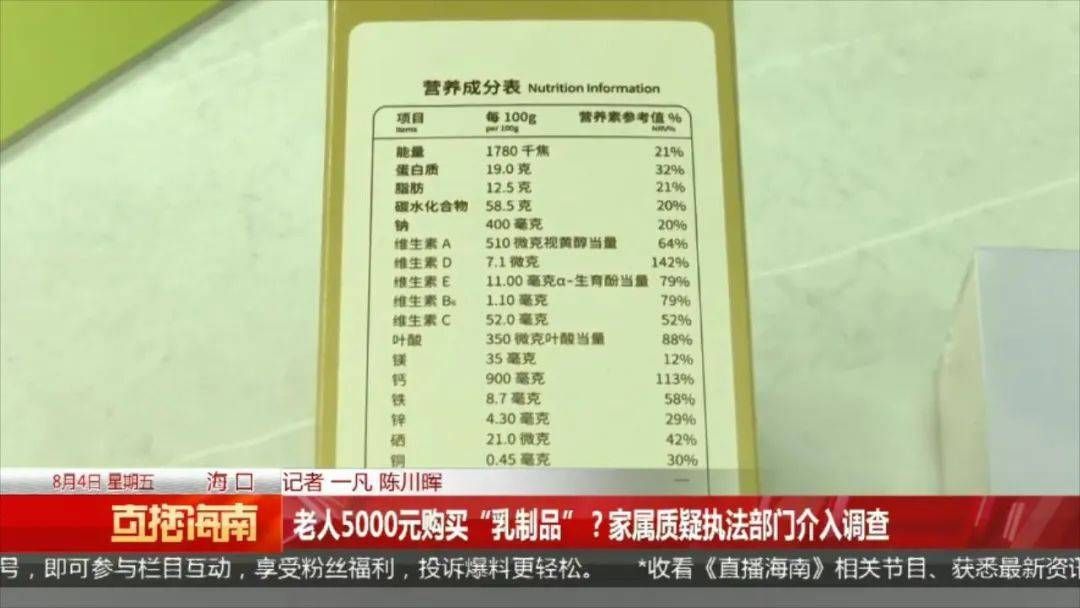 营养成分表 Nutrition Information
项目 每 100g 营养素参考值 %
Items per 100g NRV%
能量 1780 千焦 21%
蛋白质 19.0 克 32%
脂肪 12.5 克 21%
碳水化合物 58.5 克 20%
钠 400 毫克 20%
维生素 A 510 微克视黄醇当量 64%
维生素 D 7.1 微克 142%
维生素 E 11.00 毫克α-生育酚当量 79%
维生素 B₆ 1.10 毫克 79%
维生素 C 52.0 毫克 52%
叶酸 350 微克叶酸当量 88%
镁 35 毫克 12%
钙 900 毫克 113%
铁 8.7 毫克 58%
锌 4.30 毫克 29%
硒 21.0 微克 42%
铜 0.45 毫克 30%
8月4日 星期五 海口 记者 一凡 陈川晖
直播海南 老人5000元购买“乳制品”？家属质疑执法部门介入调查
号，即可参与栏目互动，享受粉丝福利，投诉爆料更轻松。 *收看《直播海南》相关节目、获悉最新资讯